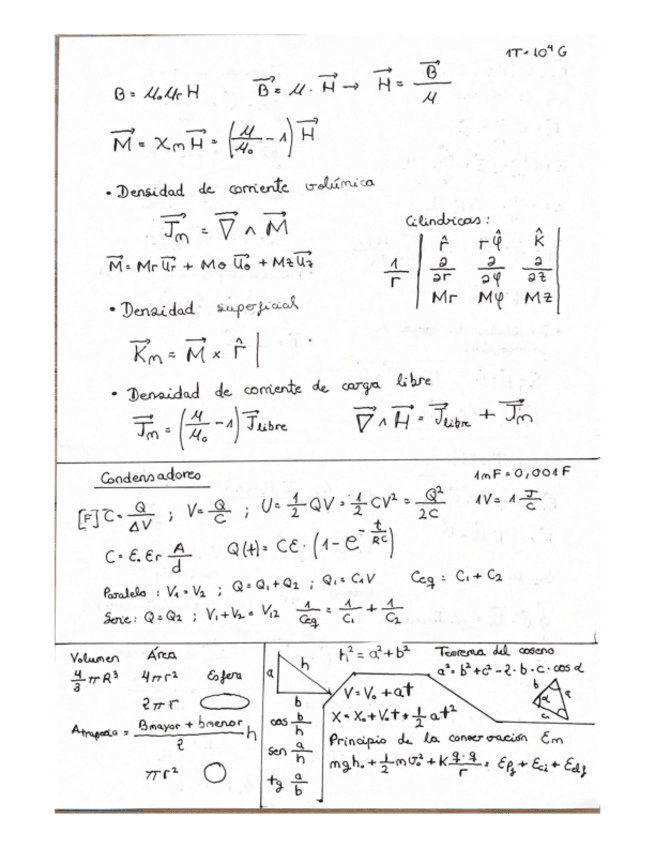 1T = 10⁴ G
B = μ₀μᵣH    B⃗ = μ · H⃗ → H⃗ = B⃗/μ
M⃗ = χm H⃗ = (μ/μ₀ - 1) H⃗
• Densidad de corriente volúmica
J⃗m = ∇⃗ ∧ M⃗
Cilíndricas:
M⃗ = Mr u⃗r + Mθ u⃗θ + Mz u⃗z
1/r | r̂  rφ̂  k̂ |
| ∂/∂r  ∂/∂φ  ∂/∂z |
| Mr  Mφ  Mz |
• Densidad superficial
K⃗m = M⃗ × r̂ |
• Densidad de corriente de carga libre
J⃗m = (μ/μ₀ - 1) J⃗libre    ∇⃗ ∧ H⃗ = J⃗libre + J⃗m
Condensadores    1mF = 0,001F
[F] C = Q/ΔV ; V = Q/C ; U = 1/2 QV = 1/2 CV² = Q²/2C    1V = 1 J/C
C = ε₀ εr A/d    Q(t) = Cε · (1 - e^(-t/RC))
Paralelo : V₁ = V₂ ; Q = Q₁ + Q₂ ; Q₁ = C₁V    Ceq : C₁ + C₂
Serie : Q = Q₂ ; V₁ + V₂ = V₁₂  1/Ceq = 1/C₁ + 1/C₂
Volumen  Área
4/3 πR³  4πr²  Esfera
2πr
Atrapecio = (Bmayor + bmenor)/2 h
πr²
a  h  b
h² = a² + b²
cos b/h
sen a/h
tg a/b
Teorema del coseno
a² = b² + c² - 2 · b · c · cos α
b  a  α  c
V = V₀ + at
X = X₀ + V₀t + 1/2 at²
Principio de la conservacion Em
mgh₀ + 1/2 mv₀² + K q·q/r = Epf + Ecf + Eelf